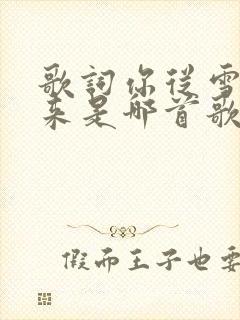 歌詞你從雪
來是哪首歌
假而王子也要